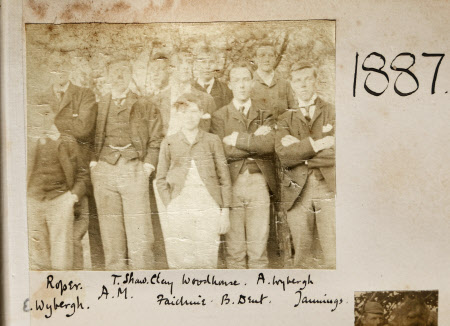 1887.
Roper. T. Shaw. Clay Woodhouse. A. Wybergh
E. Wybergh. A.M. Faichnie. B. Dent. Jannings.